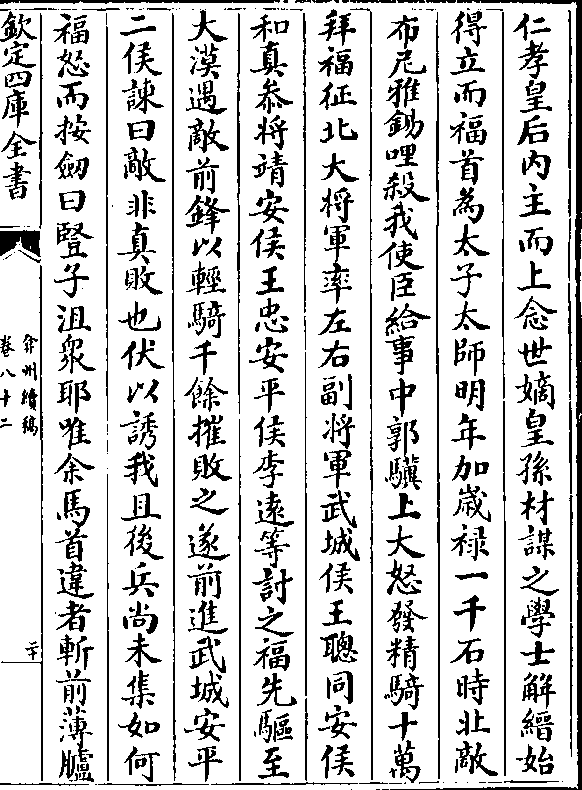 仁孝皇后内主而上念世嫡皇孫材謀之學士解縉始
得立而福首為太子太師明年加歲禄一千石時北敵
布尼雅錫哩殺我使臣給事中郭驥上大怒發精騎十萬
拜福征北大將軍率左右副將軍武城侯王聰同安侯
和真叅將靖安侯王忠安平侯李遠等討之福先驅至
大漠遇敵前鋒以輕騎千餘摧敗之遂前進武城安平
二侯諫曰敵非真敗也伏以誘我且後兵尚未集如何
福怒而按劒曰豎子沮衆耶唯余馬首違者斬前薄臚
欽定四庫全書
弇州續稿
卷八十二
二十